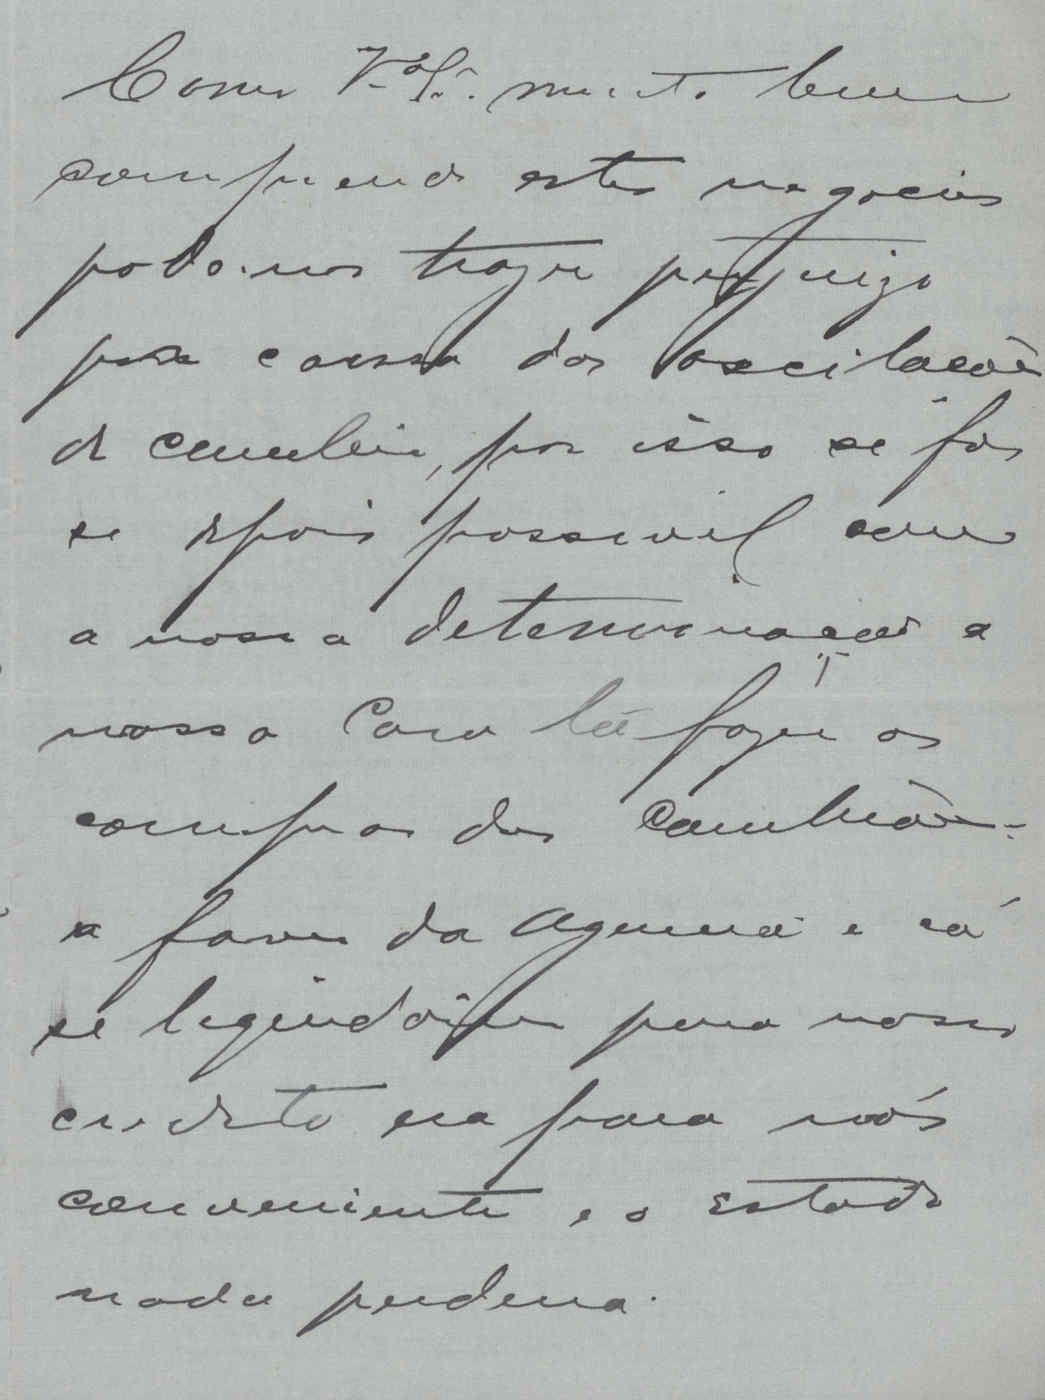 Como V.ª S.ª muito bem
comprende estes negocios
pode-nos trazer perjuizo
por causa das oscilacões
de cambio, por isso se fos
se depois possivel com
a nossa determinação a
nossa Casa lá fazer as
compras das cambiães
a favor da Agencia e cá
se legindasem para nosso
credito era para nós
conveniente e o Estado
nada perderia.